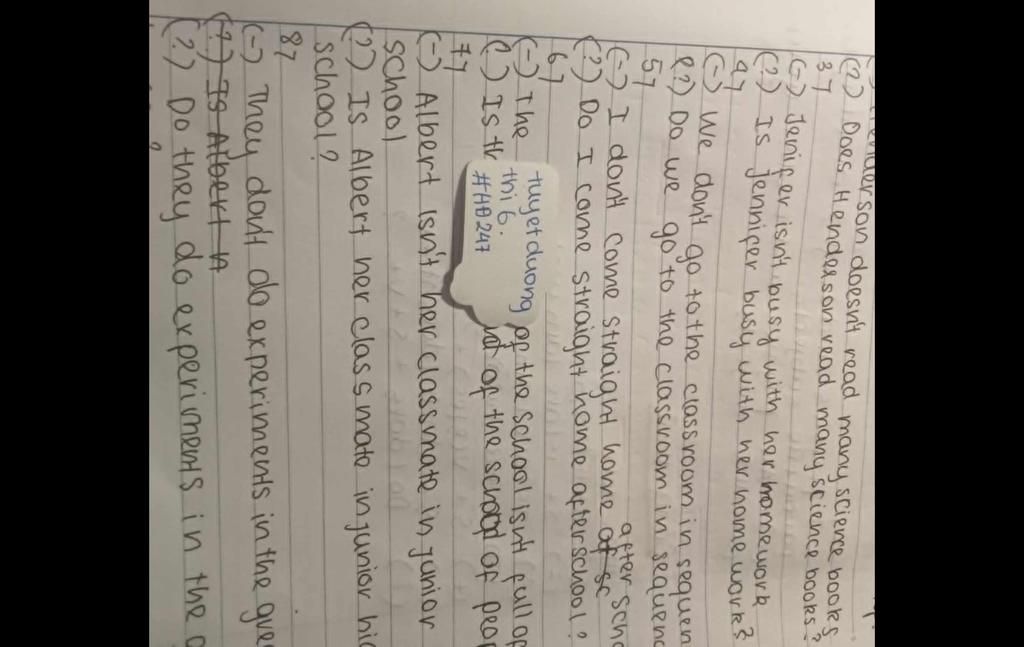 Henderson doesn't read many science books
(?) Does Henderson read many science books?
3>
(-) Jenifer isn't busy with her homework
(?) Is Jennifer busy with her home work?
4>
(-) We don't go to the classroom in sequen
(?) Do we go to the classroom in sequenc
5>
(-) I don't come straight home after scho
(?) Do I come straight home after school?
6>
(-) The of the school isn't full of
(?) Is of the school of peop
7>
(-) Albert isn't her classmate in junior
school
(?) Is Albert her classmate in junior hig
school?
8>
(-) They don't do experiments in the gree
(?) Is Albert
(?) Do they do experiments in the g
?
tuyetduong
thi 6.
#HĐ247